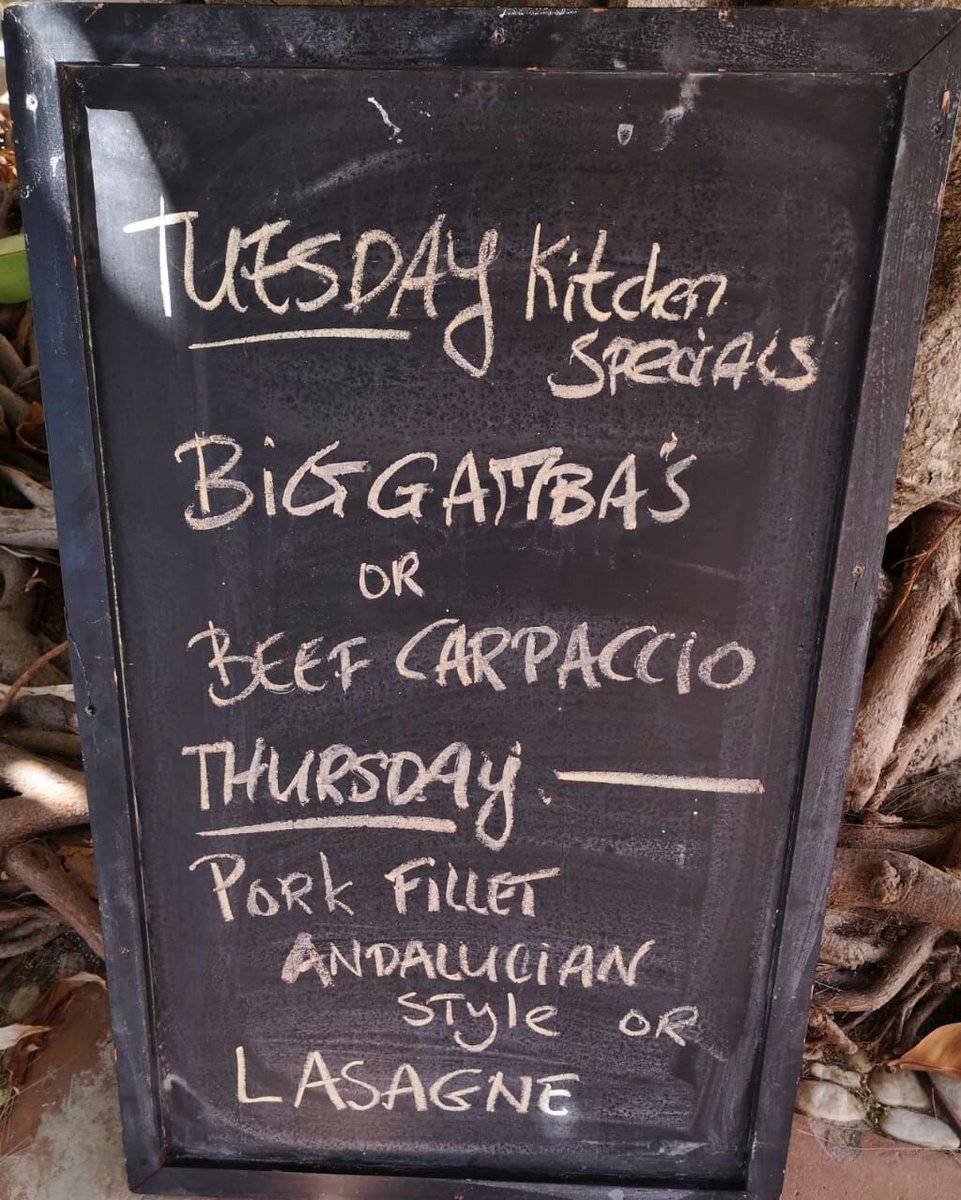 TUESDAY Kitchen
SPECIALS
BIG GAMBA'S
OR
BEEF CARPACCIO
THURSDAY. —
PORK FILLET
ANDALUCIAN
STYLE OR
LASAGNE